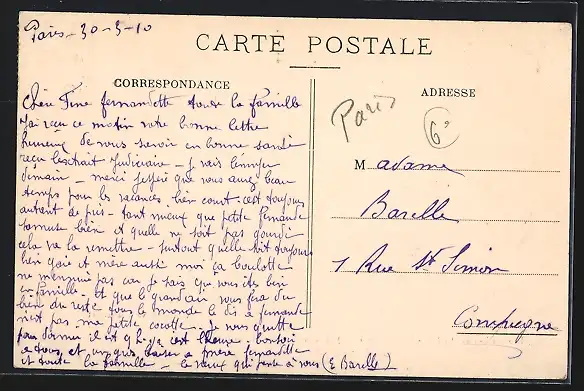 Paris - 30-3-10
CARTE POSTALE
CORRESPONDANCE
ADRESSE
Chère Fine fernandette toute la famille
J'ai reçu ce matin votre bonne lettre
heureux de vous savoir en bonne santé
reçu l'extrait Judiciaire - Je vais l'envoyer
demain - merci j'espère que vous avez beau
temps pour les vacances, bien court c'est toujours
autant de pris - tant mieux que petite fernande
s'amuse bien et quelle ne soit pas
cela va la remettre - surtout quelle soit toujours
bien gaie et mère aussi moi ça boulotte
ne m'ennuie pas car je sais que vous êtes bien
en famille, et que le grand air vous fera du
bien du reste tout le monde le dis a fernande
n'est pas ma petite cocotte - Je vous quitte
pour dormir il est 9h c'est l'heure. bonsoir
a tous, et un gros baiser a mère fernandette
et toute la famille - le vieux qui pense à vous (E Barelle)
Paris
6e
Madame
Barelle
1 Rue St Simon
Compiegne